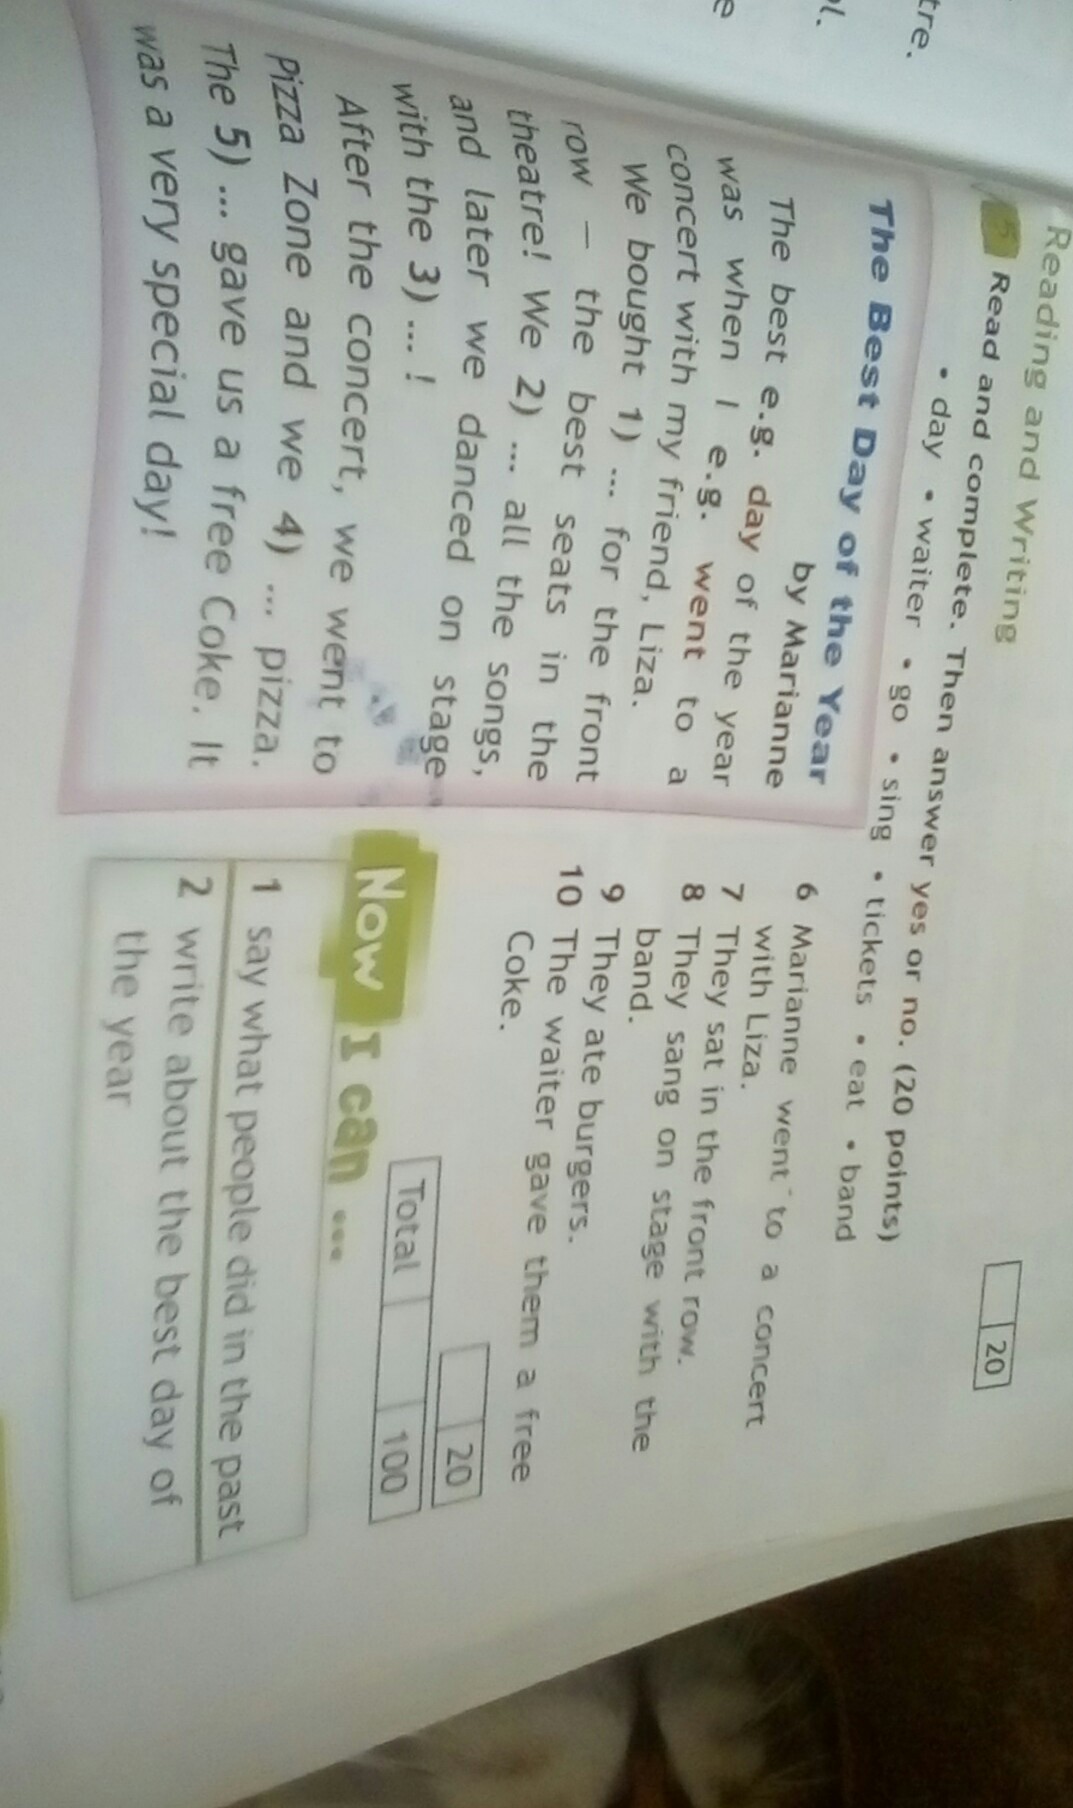 tre.
l.
e
Reading and Writing
5 Read and complete. Then answer yes or no. (20 points)
• day • waiter • go • sing • tickets • eat • band
The Best Day of the Year
by Marianne
The best e.g. day of the year
was when I e.g. went to a
concert with my friend, Liza.
We bought 1) ... for the front
row – the best seats in the
theatre! We 2) ... all the songs,
and later we danced on stage
with the 3) ... !
After the concert, we went to
Pizza Zone and we 4) ... pizza.
The 5) ... gave us a free Coke. It
was a very special day!
20
6 Marianne went to a concert
with Liza.
7 They sat in the front row.
8 They sang on stage with the
band.
9 They ate burgers.
10 The waiter gave them a free
Coke.
20
Total 100
Now I can ...
1 say what people did in the past
2 write about the best day of
the year